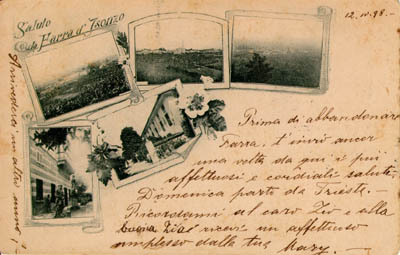 Saluto
da Farra d'Isonzo
12. IV. 98. -
Prima di abbandonare
Farra, t'invio ancor
una volta da qui i più
affettuosi e cordiali saluti.
Domenica parto da Trieste. -
Ricordami al caro Zio e alla
buona Zia e ricevi un affettuoso
amplesso dalla tua Mary. -